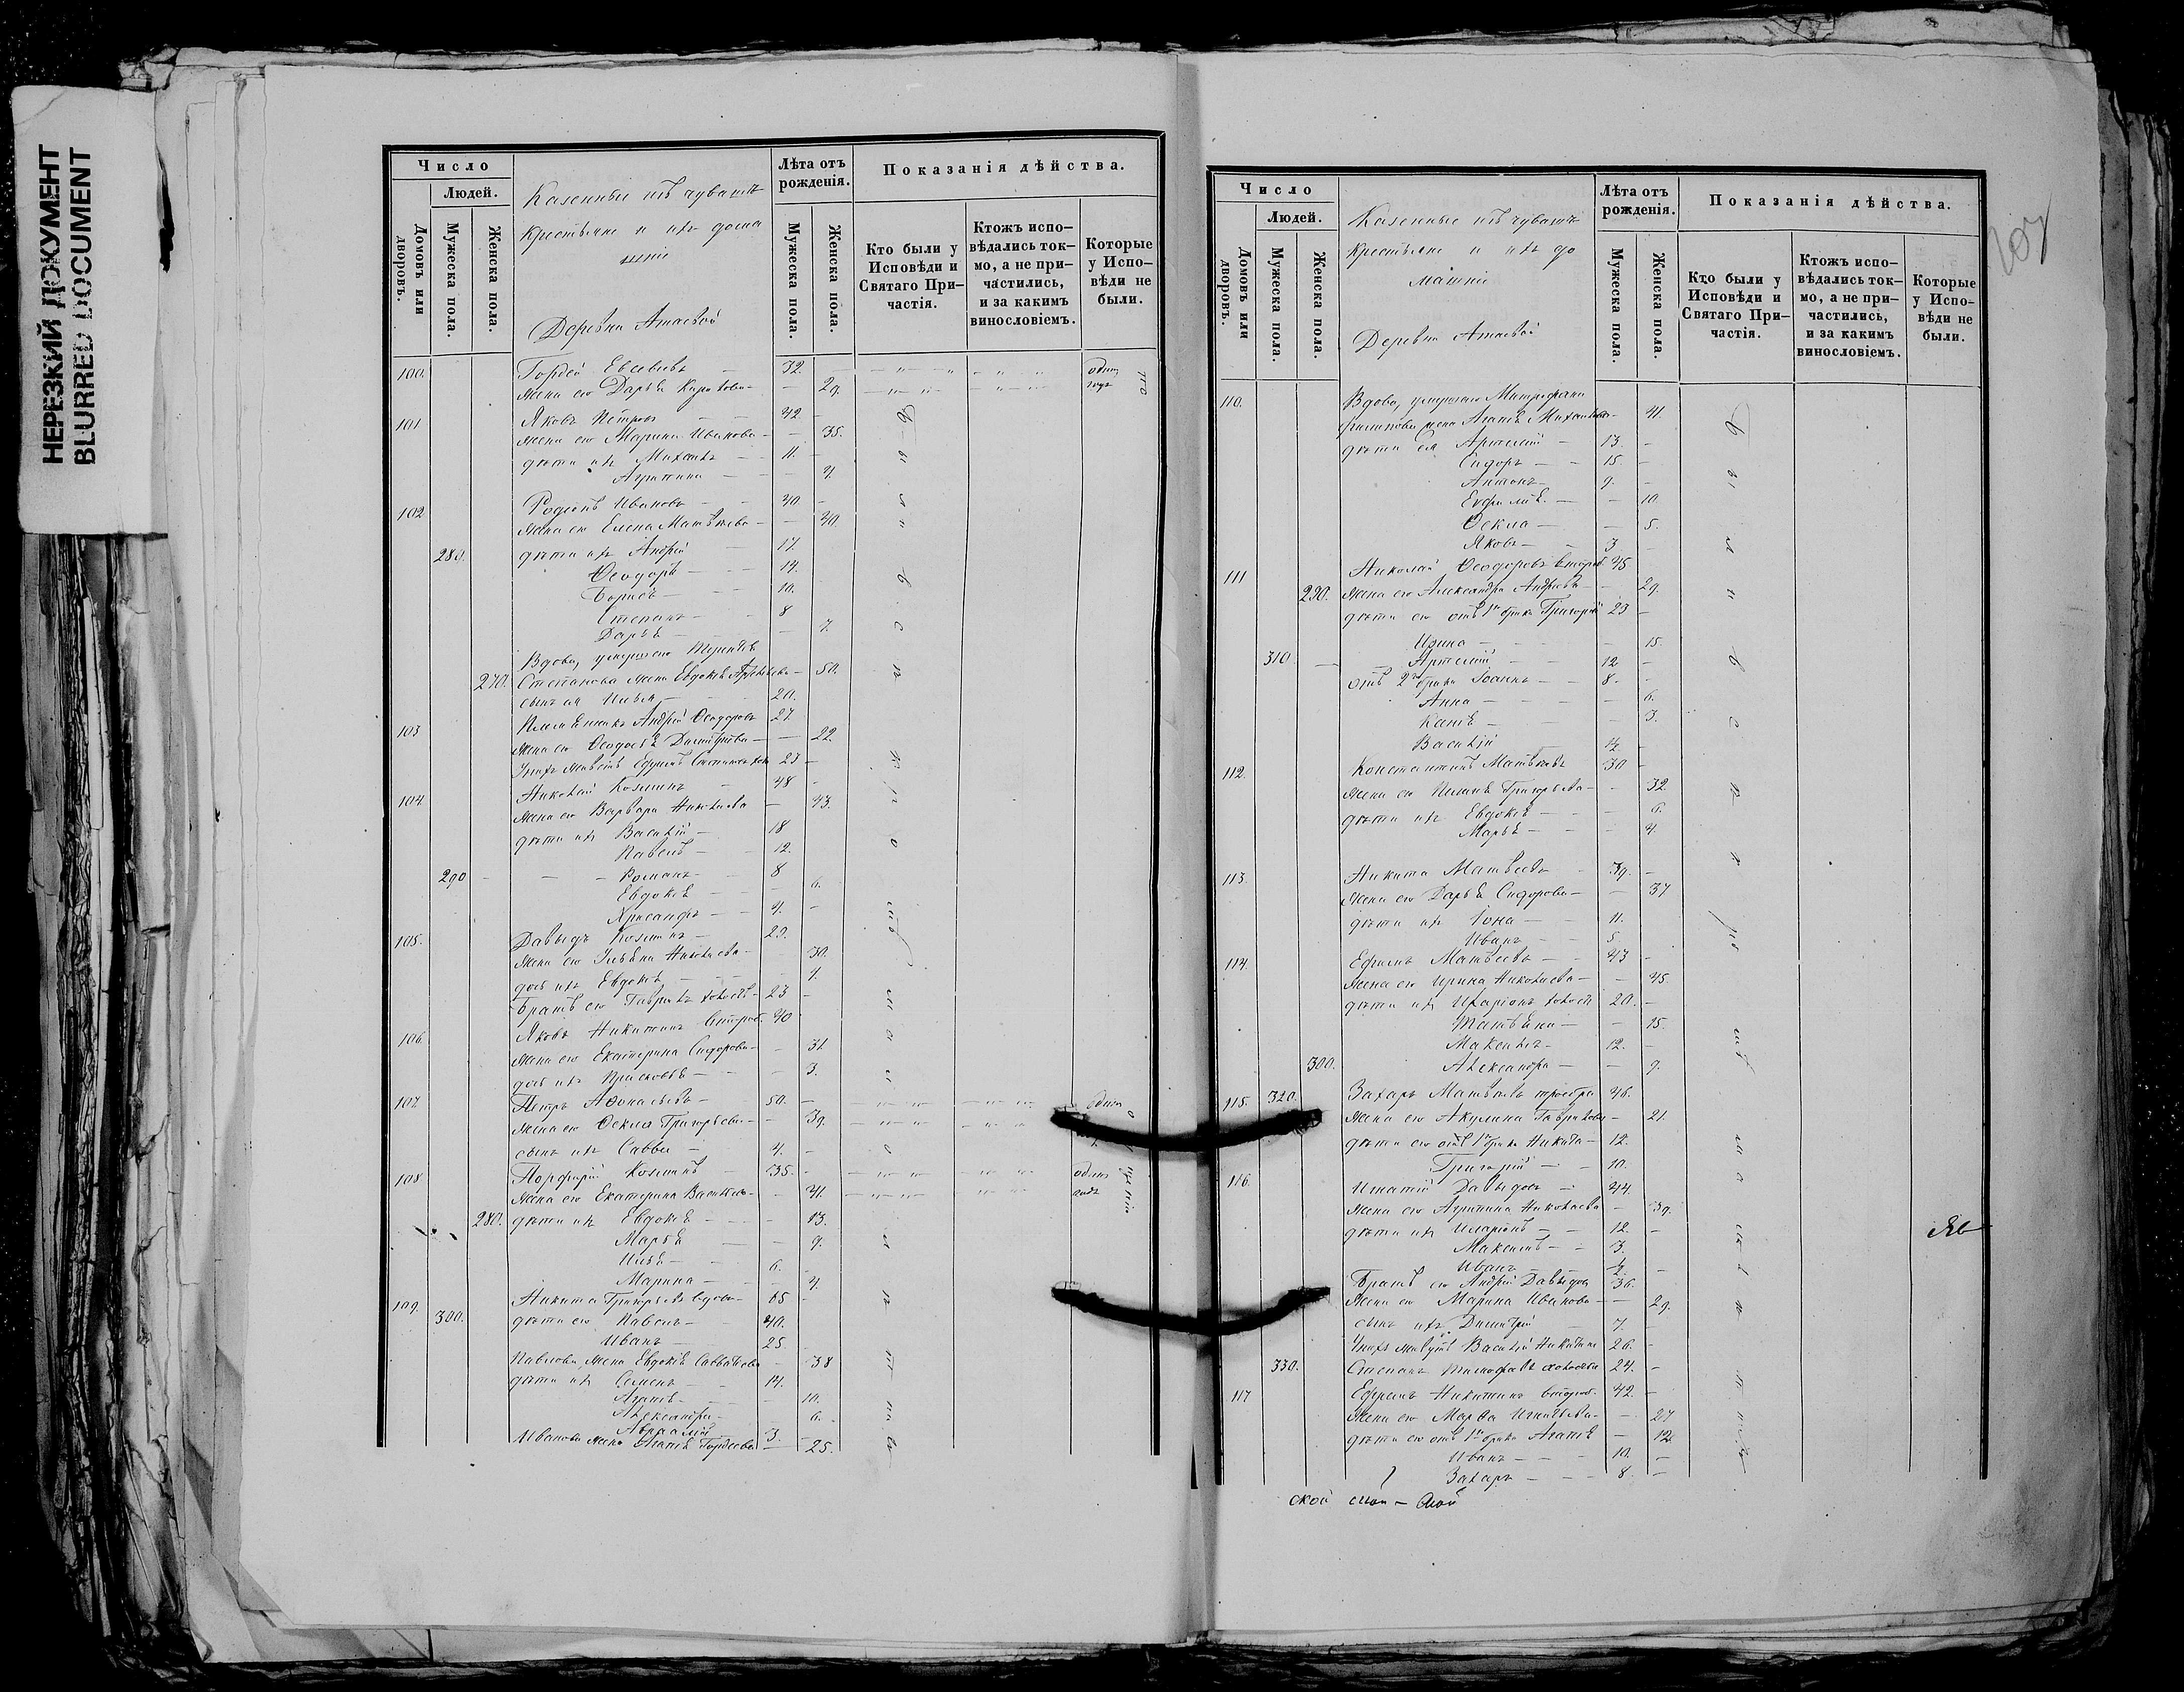 НЕРЕЗКИЙ ДОКУМЕНТ
BLURRED DOCUMENT
Число
Людей.
Домовъ или дворовъ.
Мужеска пола.
Женска пола.
Казенные изъ чувашъ
крестьяне и ихъ дома
шніе
Деревни Атаевой
Лѣта отъ рожденія.
Мужеска пола.
Женска пола.
Показанія дѣйства.
Кто были у Исповѣди и Святаго При-частія.
Ктожъ испо-вѣдались ток-мо, а не при-частились, и за какимъ винословіемъ.
Которые у Испо-вѣди не были.
100. Гордей Евсевьевъ — 32. один
жена его Дарья — 29. годъ
101 Яковъ Петровъ 42.
жена его Марина Иванова — 35.
дѣти ихъ Михаилъ — 11.
Агрипина — 4.
102 Родіонъ Ивановъ 40.
жена его Елена Матвѣева — 40.
280. дѣти ихъ Андрей — 17.
Ѳеодоръ — 14.
Борисъ — 10.
Степанъ — 8
Дарья — 7.
Вдова, умершаго
270. Степанова жена Евдокія — 50.
сынъ ея Илья — 20.
103 Племянникъ Андрей Ѳеодоровъ 27
жена его Ѳеодосья Дмитріева — 22.
У нихъ живетъ Ефремъ 27
104 Николай Козминъ 48
жена его Варвара Николаева 43.
дѣти ихъ Василій — 18
Павелъ — 12.
290 Романъ — 8
Евдокія — 6.
Хрисанфъ — 4.
105. Давыдъ Козминъ — 29.
жена его Ульяна Николаева — 30.
дочь ихъ Евдокія — 4.
Братъ его Гаврилъ холостъ — 23
106 Яковъ Никитинъ второб. 40
жена его Екатерина Сидорова — 31
дочь ихъ Прасковья — 3.
107 Петръ Аѳонасьевъ — 50. один
жена его Ѳекла Григорьева — 39.
сынъ ихъ Савва — 4.
108 Порфирій Козминъ — 35. один
жена его Екатерина Васильева — 41. годъ
280. дѣти ихъ Евдокія — 13.
Марья — 9.
Илья — 6.
Марина — 4.
109. Никита Григорьевъ вдовъ — 65
300. дѣти его Павелъ — 40.
Иванъ — 25.
Павлова жена Евдокія — 38
дѣти ихъ Семенъ — 14.
Агафья — 10.
Александра — 6.
Авраамій 3.
Иванова жена Агафья Гордеева — 25.
Число
Людей.
Домовъ или дворовъ.
Мужеска пола.
Женска пола.
Казенные изъ чувашъ
крестьяне и ихъ до
машніе
Деревни Атаевой
Лѣта отъ рожденія.
Мужеска пола.
Женска пола.
Показанія дѣйства.
Кто были у Исповѣди и Святаго При-частія.
Ктожъ испо-вѣдались ток-мо, а не при-частились, и за какимъ винословіемъ.
Которые у Испо-вѣди не были.
110. Вдова, умершаго Митрофана
Филипова жена Агафья Михаилова — 41.
дѣти ея Артемій — 13.
Сидоръ — 15.
Антонъ — 9.
Евфимія — 10.
Ѳекла — 5.
Яковъ — 3
111 Николай Ѳеодоровъ второб. 45
290. жена его Александра Андреева — 29.
дѣти его отъ 1го брака Григорій 23
Ирина — 15.
310 Артемій — 12
отъ 2го брака Іоаннъ — 8.
Анна — 6.
3.
Василій
112. Константинъ Матвѣевъ 30
жена его Григорьева — 32
дѣти ихъ Евдокія — 6.
Марья — 4.
113. Никита Матвѣевъ 39.
жена его Дарья Сидорова — 37
дѣти ихъ Іона — 11.
Иванъ — 5.
114. Ефимъ Матвѣевъ — 43
жена его Ирина Николаева — 45.
дѣти ихъ Иларіонъ холостъ 20.
Татьяна — 15.
Максимъ — 12.
300. Александра — 9.
115. 320. Захаръ Матвѣевъ 46.
жена его Акулина Гаврилова — 21.
дѣти его отъ 1го брака Никита — 12.
Григорій — 10.
116. Игнатій Давыдовъ — 44.
жена его Агрипина Николаева — 39.
дѣти ихъ Иларіонъ — 12.
Максимъ — 3.
Иванъ
Братъ его Андрей Давыдовъ 36.
жена его Марина Иванова — 29.
сынъ ихъ Димитрій — 7.
У нихъ живутъ Василій Никитинъ 26.
330. Степанъ Тимофеевъ холосты 24.
117 Ефремъ Никитинъ второб. 42.
жена его Марѳа Игнатьева — 27
дѣти его отъ 1го брака Агафья — 12.
Иванъ — 10.
Захаръ — 8.